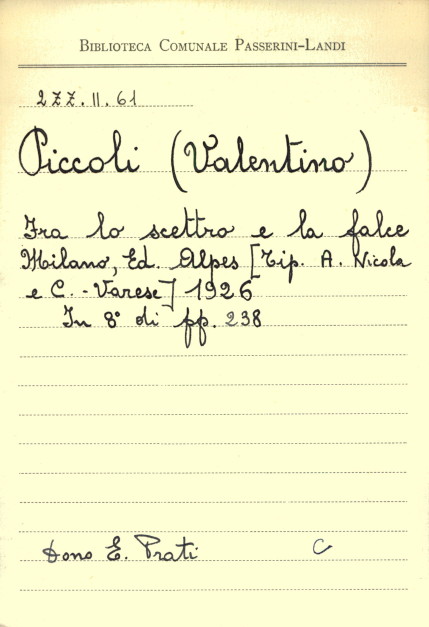 BIBLIOTECA COMUNALE PASSERINI-LANDI
2ZZ.II.61
Piccoli (Valentino)
Fra lo scettro e la falce
Milano, Ed. Alpes [Tip. A. Nicola
e C. - Varese] 1926
In 8° di pp. 238
Dono E. Prati C